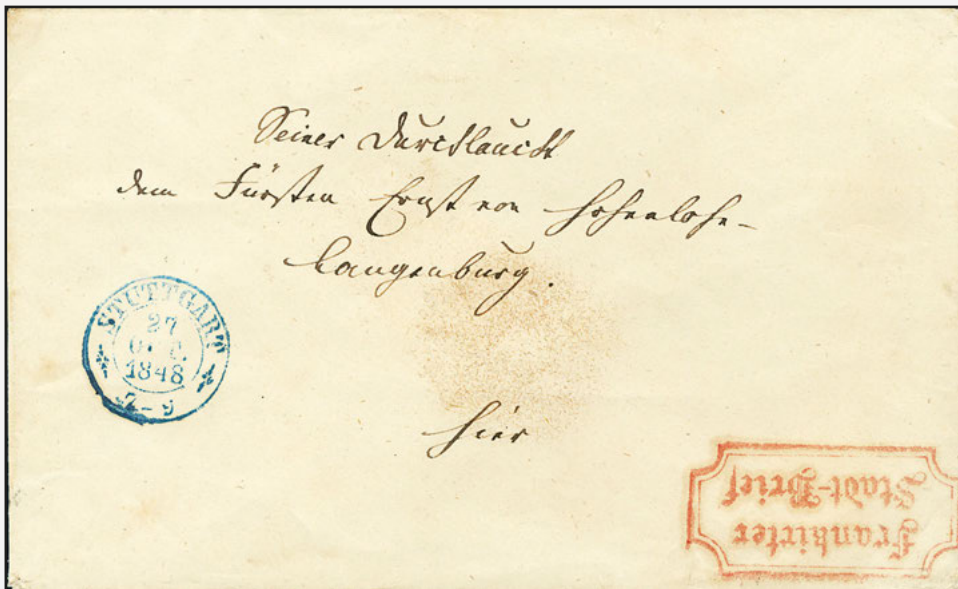 Seiner Durchlaucht
dem Fürsten Ernst von Hohenlohe-
Langenburg.
STUTTGART
27
1848
hier
Frankirter
Stadt-Brief